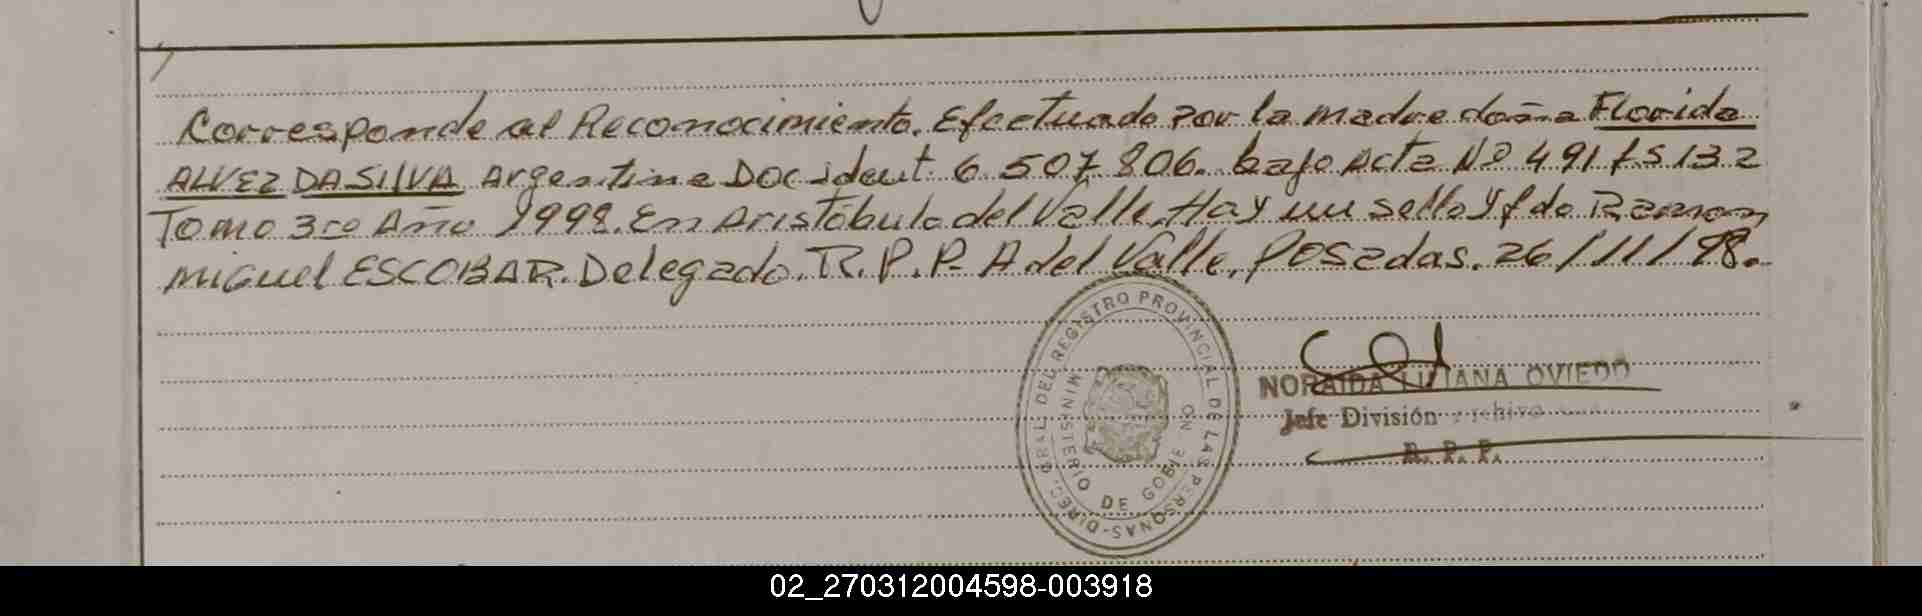 Corresponde al Reconocimiento. Efectuado por la madre doña Florida
ALVEZ DA SILVA Argentina Doc ident. 6.507.806. bajo Acta Nº 491 fs 132
Tomo 3ro Año 1998. En Aristóbulo del Valle. Hay un sello y fdo Ramon
Miguel ESCOBAR. Delegado. R.P.P. A del Valle. Posadas. 26/11/98.
DIREC. GRAL. DEL REGISTRO PROVINCIAL DE LAS PERSONAS-
MINISTERIO DE GOBIENO
NORAIDA LILIANA OVIEDO
Jefe División Archivo
R. P. P.
02_270312004598-003918